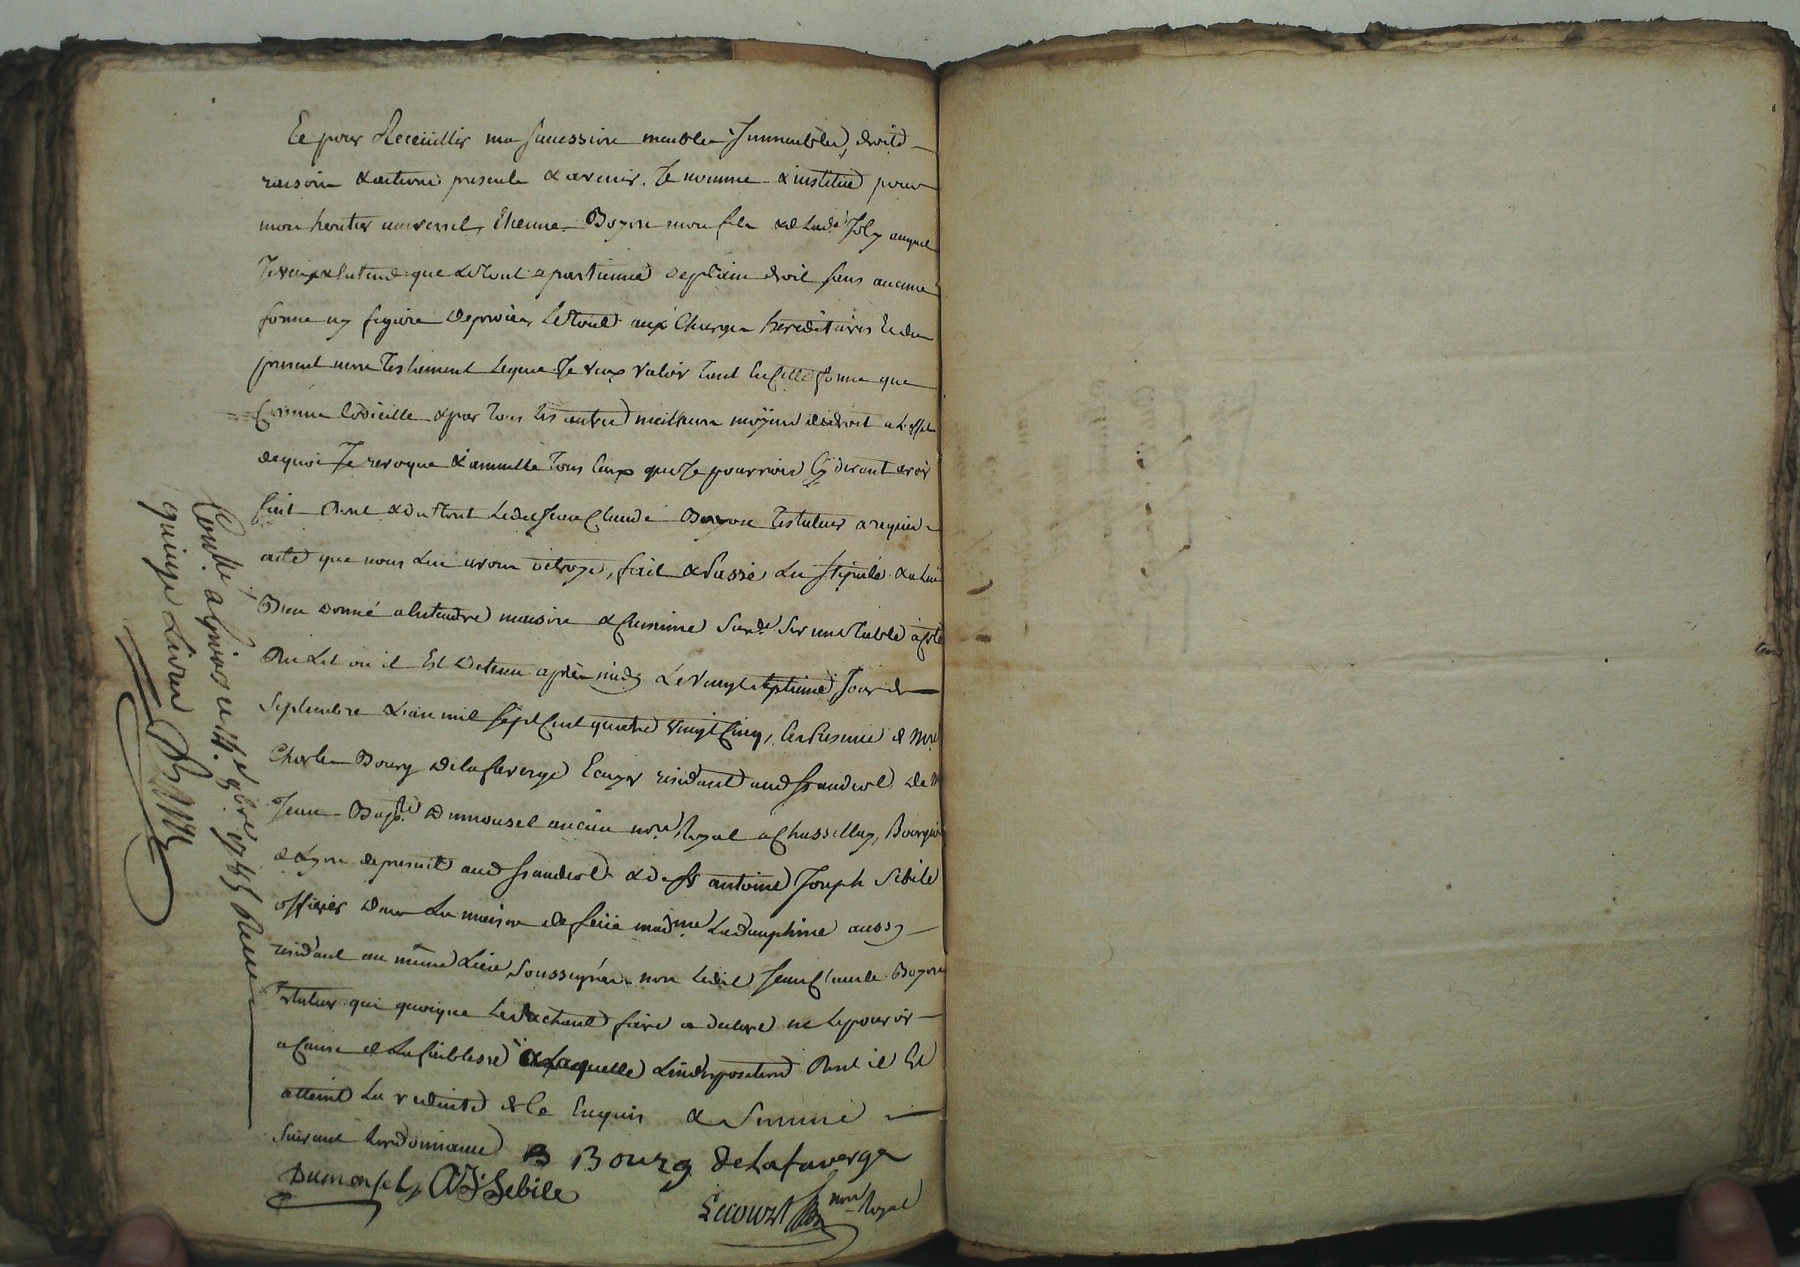 Et pour Receüillir ma sucession meubles Immeubles, droits
raisons & actions presents & avenir. Je nomme & institue pour
mon heritier universel, Etienne Boyon mon fils & de lad.e Joly auquel
Je veux & entend que le tout apartienne de plain droit sans aucune
forme ny figure de procès, Le tout aux Charges hereditaires Et du
present mon Testament Lequel Je veux valoir tant En cette forme que
Comme Codicille & par tous les autres meilleurs moÿens de droit a L'effet
de quoi Je revoque & annulle tous Ceux que Je pourrois Cy devant avoir
fait Dont & du tout Ledit Jean Claude Boyon Testateur a requis
acte que nous Lui avons octroyé, fait & Passé au
Bien donné a entendre maison & Sur une Table a Coté
Du Lit ou il Est detenu après midy Le vingt septieme Jour de
Septembre L'an mil sept Cent quatre vingt Cinq, En Presence de
Charles Bourg Delafaverge Ecuyer residant aud de
Jean Bap.te Dumousel ancien no.re Royal a Chassellay, Bourgeois
de Lyon de present aud & de Sr antoine Joseph Sebile
officier dans La maison de feüe mad.me La dauphine aussy
residant au même Lieu, Soussignés non Ledit Jean Claude Boyon
Testateur qui quoique Le sachant faire a declaré ne Le pouvoir
a Cause de La faiblesse a Laquelle L'indisposition Dont il Est
atteint La reduite de Ce Enquis & Sommé
Suivant L'ordonnance
B Bourg DeLafaverge
Dumousel AJ Sebile
Lecourt no.re Royal
Con.lé a le 8bre 1785 Reçu
quinze Livres